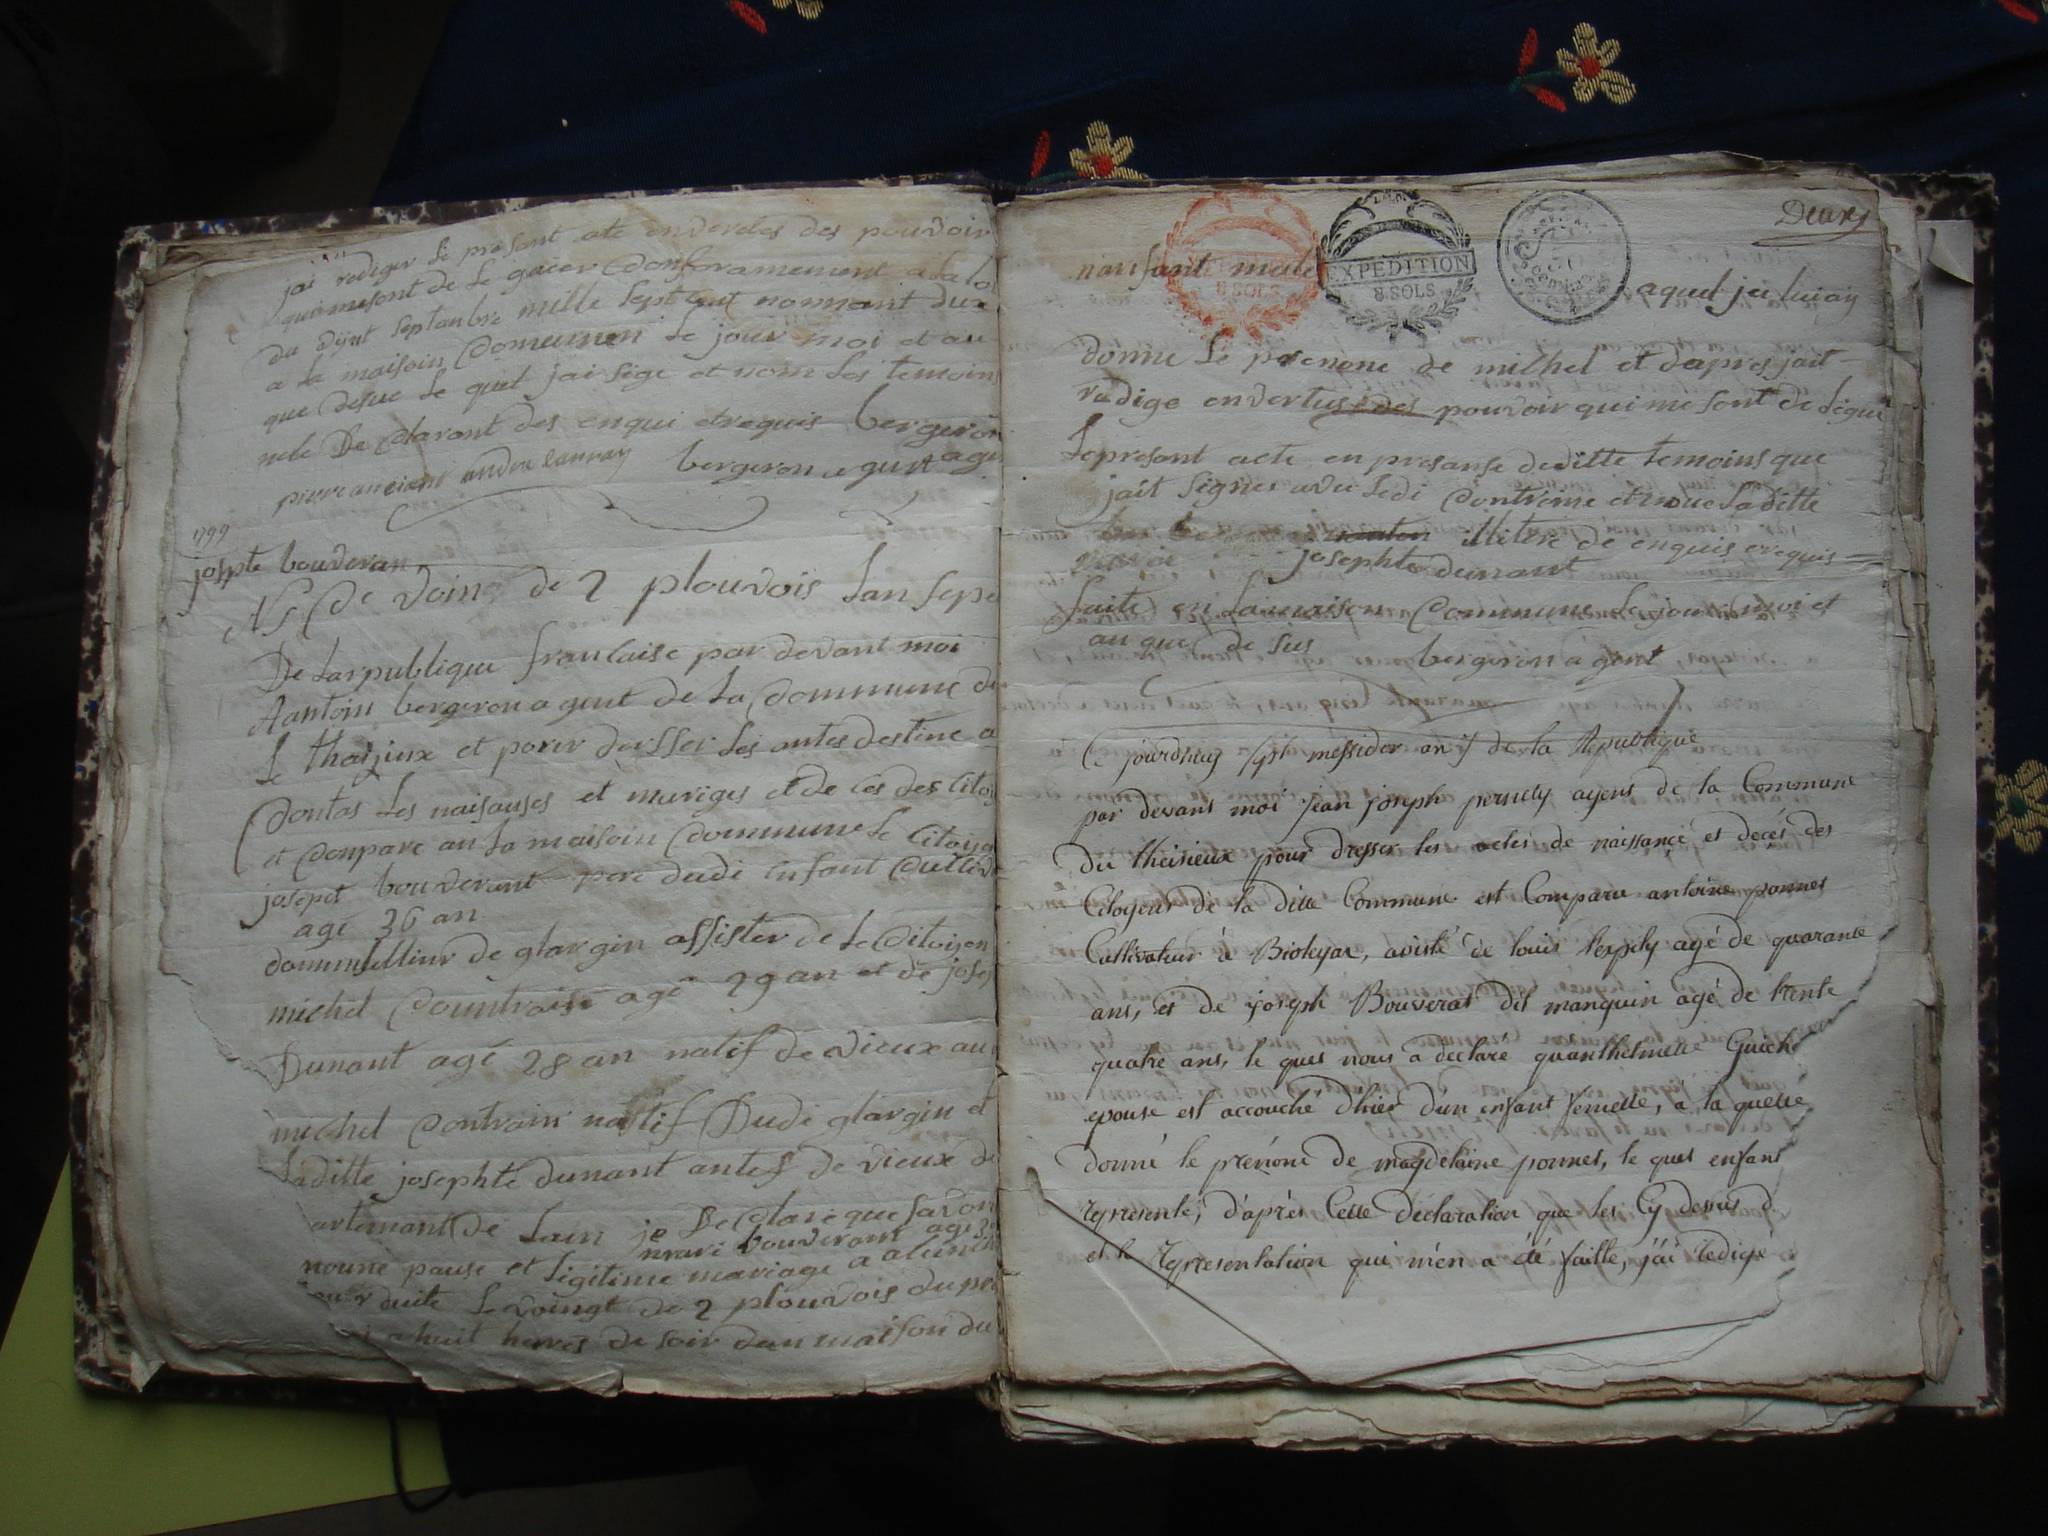 jai rediger le presant ate envertes des pouvoir
qui me sont de le guer Conforamement a la lo
du dijnt septanbre mille sept cent nonnant dux
a la maisoin Comumen le jour moi et au
que desue le quel jai sige et nom les temoins
nele De Claront des enqui et requis bergeron
pierre ancian andre launay bergeron agent
1799
josphte bouveran
de voing de 2 plouvois lan sept
De La rpublique franlaise par devant moi
Aantoin bergeron agent de La Commune du
Le tharjeux et porer dresser les antes destine a
Contas les naisanses et mariges et de ces des Citoy
et Conpare an la maisoin Commune le Citoyen
josept bouverant pere dudi enfant Cultiv
age 36 an
de glargin assister de le Citoyen
michel Countraise age 29 an et de josep
Dunant agé 28 an natif de vieux au
michel Contrain natif Dudi glargin et
Laditte josephte dunant antes de vieux de
artemant de Lain je De Clare que favon
mari bouverant agé
noune pause et ligitime mariage a
duite le voingt de 2 plouvois du
a huit heures de soir dan maison du
Deuxy
EXPEDITION
8.SOLS
EXPEDITION
8.SOLS
nanfant male aquel je luiay
donne le prenone de milhel et dapres jait
redige en vertus des pouvoir qui me sont de légué
Le presant acte en presanse deditte temoins que
jait signer avu ledi Contrene et noue laditte
illitere de enquis erequis
josephte dunant
faite en la maison Commune le jour moi et
au que de sus bergeron agent
Ce jourdhuy sept messidor an 7 de la Republique
par devans moi jean joseph pernety agens de la Commune
du theizieux pour dresser les actes de naissance et deces des
Citoyens de la ditte Commune est Comparu antoine ponnes
Cultivateur à Bioleyar, avisté de louis lexpily agé de quarante
ans, et de joseph Bouverat dit manquin agé de trente
quatre ans, le ques nous a declaré quanthelmette Guiche
epouse est accouché d'hier d'un enfant femelle, à la quelle
donné le prénone de magdelaine ponnes, le ques enfans
représente, d'après Cette déclaration que les Cy dessus d
et la representation qui m'en a été faitte, j'ai redigé